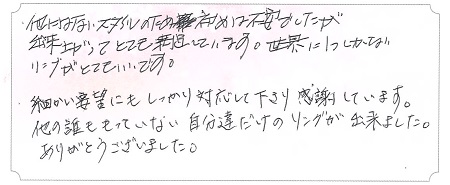 ・他にはないスタイルのため初めは不安でしたが
出来上がってとても満足しています。世界に1つしかない
リングがとてもいいです。
・細かい要望にもしっかり対応して下さり感謝しています。
他の誰ももっていない自分達だけのリングが出来ました。
ありがとうございました。